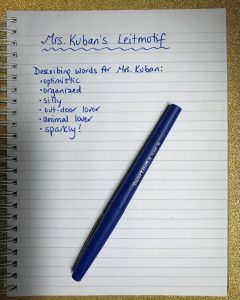 Mrs. Kuban's Leitmotif
Describing words for Mrs. Kuban:
• optimistic
• organized
• silly
• out-door lover
• animal lover
• sparkly!